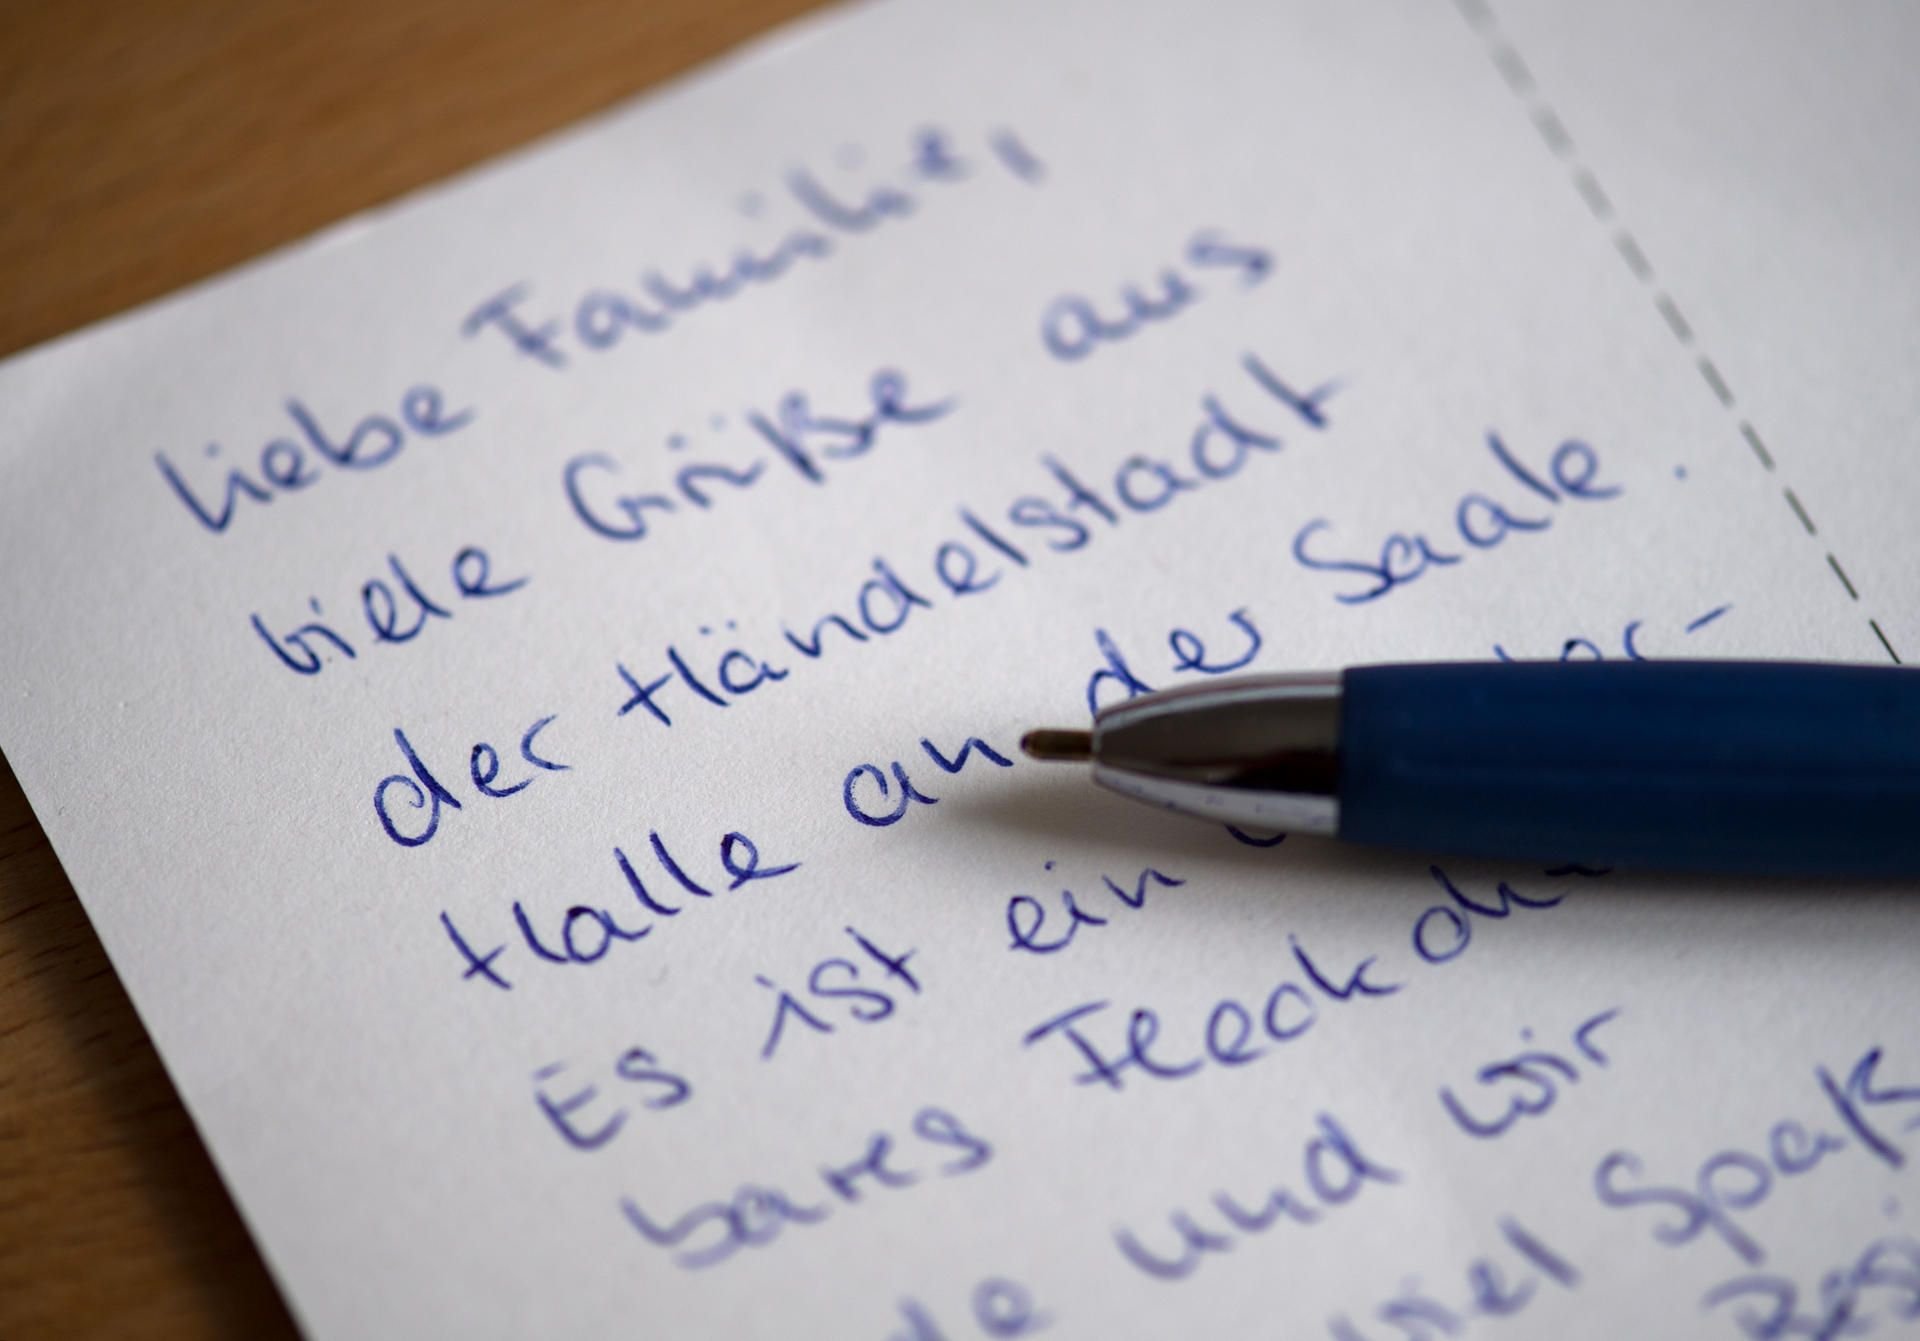 Liebe Familie,
viele Grüße aus
der Händelstadt
Halle an der Saale.
Es ist ein
bares Fleckchen
und wir
viel Spaß